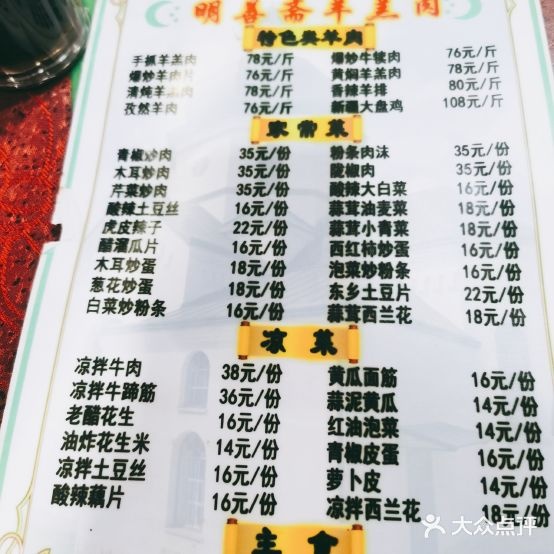 明善斋羊羔肉
特色类羊肉
手抓羊羔肉 78元/斤 爆炒牛犊肉 76元/斤
爆炒羊肉片 76元/斤 黄焖羊羔肉 78元/斤
清炖羊羔肉 78元/斤 香辣羊排 80元/斤
孜然羊肉 76元/斤 新疆大盘鸡 108元/斤
家常菜
青椒炒肉 35元/份 粉条肉沫 35元/份
木耳炒肉 35元/份 陇椒肉 35元/份
芹菜炒肉 35元/份 酸辣大白菜 16元/份
酸辣土豆丝 16元/份 蒜茸油麦菜 18元/份
虎皮辣子 22元/份 蒜茸小青菜 18元/份
醋溜瓜片 16元/份 西红柿炒蛋 18元/份
木耳炒蛋 18元/份 泡菜炒粉条 16元/份
葱花炒蛋 18元/份 东乡土豆片 22元/份
白菜炒粉条 16元/份 蒜茸西兰花 18元/份
凉菜
凉拌牛肉 38元/份 黄瓜面筋 16元/份
凉拌牛蹄筋 36元/份 蒜泥黄瓜 14元/份
老醋花生 16元/份 红油泡菜 14元/份
油炸花生米 14元/份 青椒皮蛋 16元/份
凉拌土豆丝 16元/份 萝卜皮 14元/份
酸辣藕片 16元/份 凉拌西兰花 18元/份
主食
大众点评